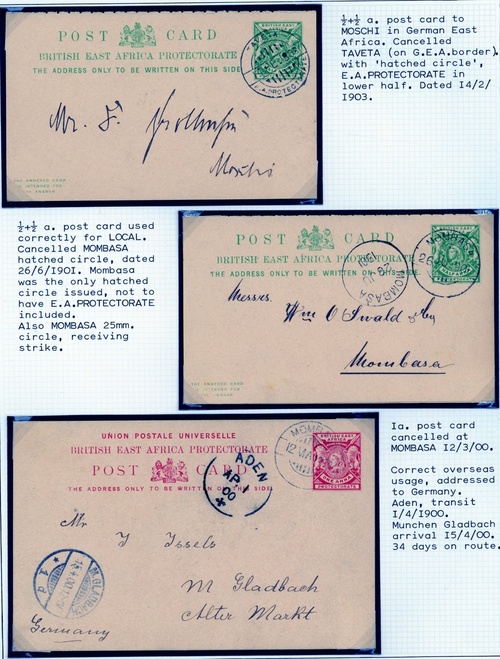 POST CARD
BRITISH EAST AFRICA PROTECTORATE
THE ADDRESS ONLY TO BE WRITTEN ON THIS SIDE
Mr. F.
Moschi
THE ANNEXED CARD
IS INTENDED FOR
THE ANSWER
½+½ a. post card to
MOSCHI in German East
Africa. Cancelled
TAVETA (on G.E.A.border)
with 'hatched circle',
E.A.PROTECTORATE in
lower half. Dated I4/2/
I903.
½+½ a. post card used
correctly for LOCAL.
Cancelled MOMBASA
hatched circle, dated
26/6/I90I. Mombasa
was the only hatched
circle issued, not to
have E.A.PROTECTORATE
included.
Also MOMBASA 25mm.
circle, receiving
strike.
POST CARD
BRITISH EAST AFRICA PROTECTORATE
THE ADDRESS ONLY TO BE WRITTEN ON THIS SIDE
MOMBASA
MOMBASA
HALF ANNA
Messrs.
Wm O'Swald & Co
Mombasa
THE ANNEXED CARD
UNION POSTALE UNIVERSELLE
BRITISH EAST AFRICA PROTECTORATE
POST CARD
THE ADDRESS ONLY TO BE WRITTEN ON THIS SIDE.
ADEN
AP
00
BRITISH EAST AFRICA
ONE ANNA
PROTECTORATE
Mr
J Issels
M Gladbach
Alter Markt
Germany
M.GLADBACH
1 d
Ia. post card
cancelled at
MOMBASA I2/3/00.
Correct overseas
usage, addressed
to Germany.
Aden, transit
I/4/I900.
Munchen Gladbach
arrival I5/4/00.
34 days on route.